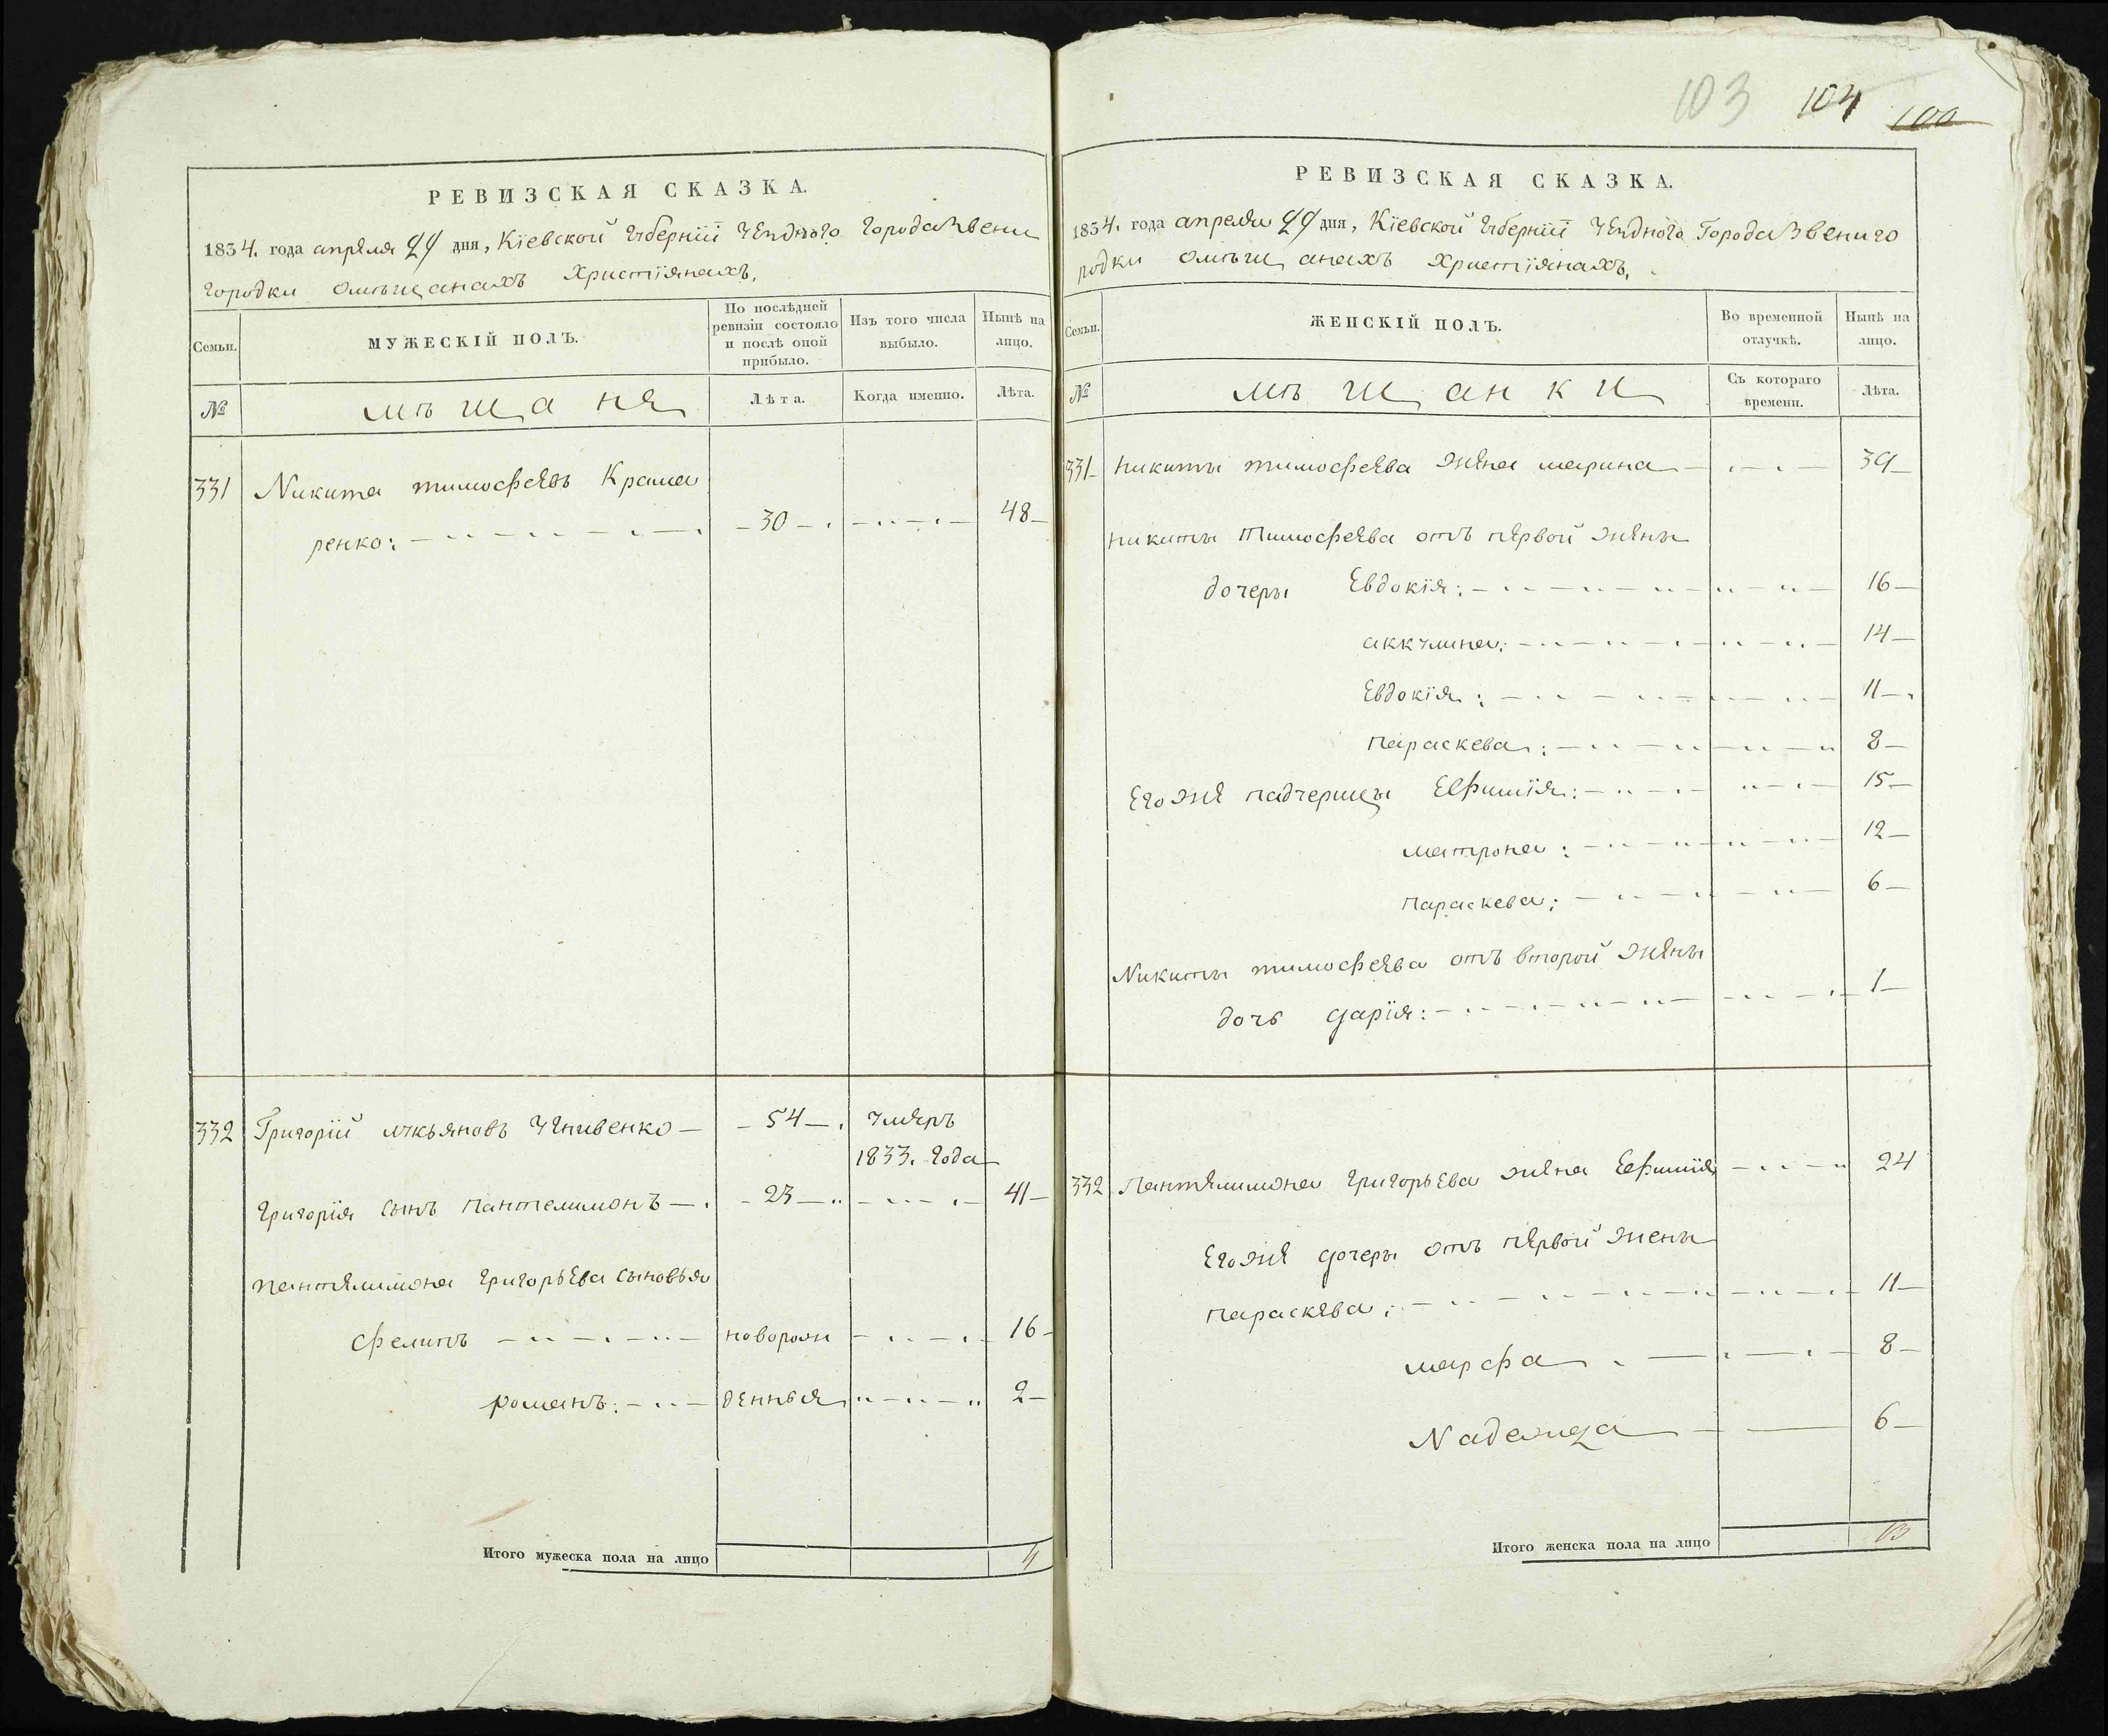 РЕВИЗСКАЯ СКАЗКА.
1834. года апреля 29 дня, Кіевской Губерніи Уезднаго города Звени
городки о мѣщанахъ христіянахъ.
Семьи.
МУЖЕСКІЙ ПОЛЪ.
По послѣдней
ревизіи состояло
и послѣ оной
прибыло.
Изъ того числа
выбыло.
Нынѣ на
лицо.
№
мѣщане
Лѣта.
Когда именно.
Лѣта.
331 Никита тимофеевъ Крама
ренко: 30 48
332 Григорій лукьяновъ 54 умеръ
1833. года
Григорія сынъ пантелимонъ 23 41
пантелимона григорьева сыновья
филипъ новорож 16
романъ: денныя 2
Итого мужеска пола на лицо 4
103 104 100
РЕВИЗСКАЯ СКАЗКА.
1834. года апреля 29 дня, Кіевской Губерніи Уезднаго Города Звениго
родки о мѣщанахъ христіянахъ.
Семьи.
ЖЕНСКІЙ ПОЛЪ.
Во временной
отлучкѣ.
Нынѣ на
лицо.
№
мѣщанки
Съ котораго
времени.
Лѣта.
331 никиты тимофеева жена марина 39
никиты Тимофеева отъ первой жены
дочеры Евдокія: 16
аккулина: 14
Евдокія: 11
параскева: 8
Его же падчерицы Ефимія: 15
матрона: 12
параскева: 6
Никиты тимофеева отъ второй жены
дочь дарія: 1
332 Пантелимона григорьева жена Ефимія 24
Его же дочеры отъ первой жены
параскева: 11
марфа 8
Надежда 6
Итого женска пола на лицо 13